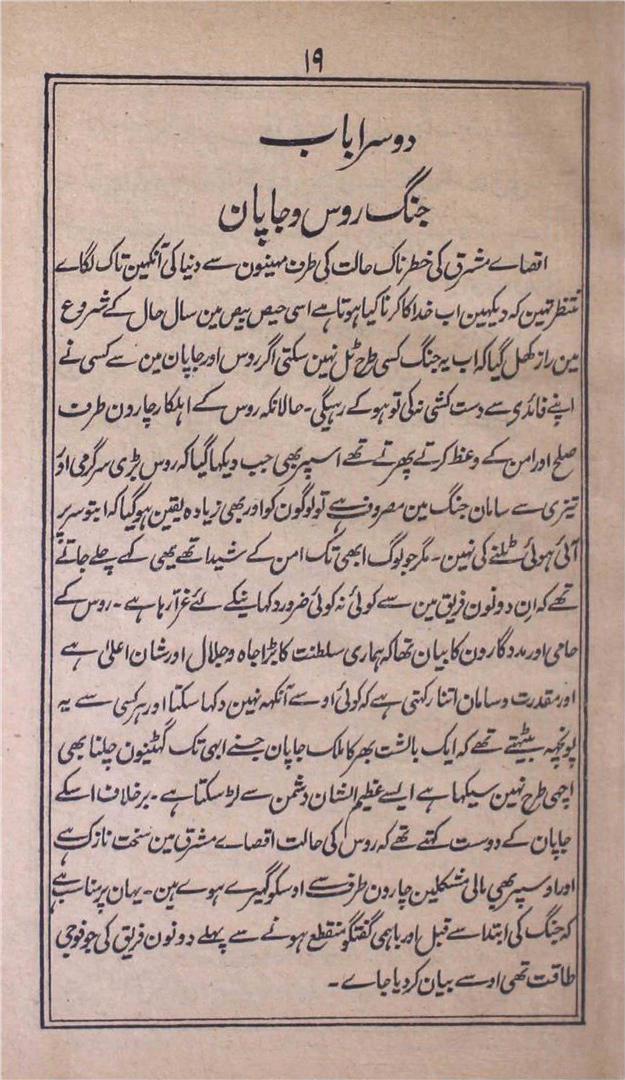 ۱۹
دوسرا باب
جنگ روس و جاپان
اقصاے مشرق کی خطرناک حالت کی طرف مہینون سے دنیا کی آنکہین تاک لگاے
منتظر تہین کہ دیکہین اب خدا کا کرنا کیا ہوتا ہے اسی حیص بیص مین سال حال کے شروع
مین راز کھل گیا کہ اب یہ جنگ کسی طرح ٹل نہین سکتی اگر روس اور جاپان مین سے کسی نے
اپنے فائدی سے دست کشی نہ کی تو ہو کے رہیگی۔ حالانکہ روس کے اہلکار چارون طرف
صلح اور امن کے وعظ کرتے پھرتے تھے اسپر بھی جب دیکہا گیا کہ روس بڑی سرگرمی اور
تیزی سے سامان جنگ مین مصروف ہے تو لوگون کو اور بھی زیادہ یقین ہو گیا کہ ابتو سر پر
آئی ہوئی ٹلنے کی نہین۔ مگر جو لوگ ابھی تک امن کے شیدا تھے یہی کہے چلے جاتے
تھے کہ ان دونون فریق مین سے کوئی نہ کوئی ضرور دکہا نیکے لئے غرّا رہا ہے۔ روس کے
حامی اور مددگارون کا بیان تھا کہ ہماری سلطنت کا بڑا جاہ و جلال اور شان اعلیٰ ہے
اور مقدرت و سامان اتنا رکہتی ہے کہ کوئی اوسے آنکہہ نہین دکہا سکتا اور ہر کسی سے یہ
پونچہہ بیٹہتے تھے کہ ایک بالشت بھر کا ملک جاپان جسنے ابہی تک گہٹنیون چلنا بھی
اچھی طرح نہین سیکہا ہے ایسے عظیم الشان دشمن سے لڑ سکتا ہے۔ برخلاف اسکے
جاپان کے دوست کہتے تھے کہ روس کی حالت اقصاے مشرق مین سخت نازک ہے
اور اوسپر بھی مالی مشکلین چارون طرف سے اوسکو گہیرے ہوے ہین۔ یہان پر مناسب ہے
کہ جنگ کی ابتدا سے قبل اور باہمی گفتگو منقطع ہونے سے پہلے دونون فریق کی جو فوجی
طاقت تھی اوسے بیان کر دیا جاے۔